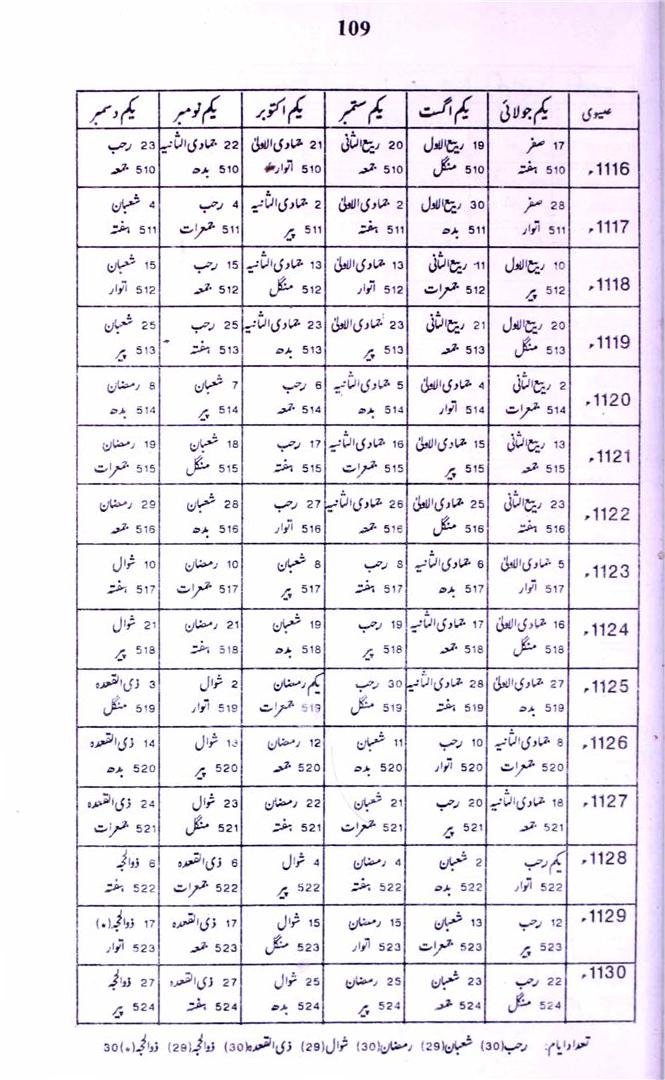 109
عیسوی یکم جولائی یکم اگست یکم ستمبر یکم اکتوبر یکم نومبر یکم دسمبر
1116ء 17 صفر 19 ربیع الاول 20 ربیع الثانی 21 جمادی الاولیٰ 22 جمادی الثانیہ 23 رجب
510 ہفتہ 510 منگل 510 جمعہ 510 اتوار 510 بدھ 510 جمعہ
1117ء 28 صفر 30 ربیع الاول 2 جمادی الاولیٰ 2 جمادی الثانیہ 4 رجب 4 شعبان
511 اتوار 511 بدھ 511 ہفتہ 511 پیر 511 جمعرات 511 ہفتہ
1118ء 10 ربیع الاول 11 ربیع الثانی 13 جمادی الاولیٰ 13 جمادی الثانیہ 15 رجب 15 شعبان
512 پیر 512 جمعرات 512 اتوار 512 منگل 512 جمعہ 512 اتوار
1119ء 20 ربیع الاول 21 ربیع الثانی 23 جمادی الاولیٰ 23 جمادی الثانیہ 25 رجب 25 شعبان
513 منگل 513 جمعہ 513 پیر 513 بدھ 513 ہفتہ 513 پیر
1120ء 2 ربیع الثانی 4 جمادی الاولیٰ 5 جمادی الثانیہ 6 رجب 7 شعبان 8 رمضان
514 جمعرات 514 اتوار 514 بدھ 514 جمعہ 514 پیر 514 بدھ
1121ء 13 ربیع الثانی 15 جمادی الاولیٰ 16 جمادی الثانیہ 17 رجب 18 شعبان 19 رمضان
515 جمعہ 515 پیر 515 جمعرات 515 ہفتہ 515 منگل 515 جمعرات
1122ء 23 ربیع الثانی 25 جمادی الاولیٰ 26 جمادی الثانیہ 27 رجب 28 شعبان 29 رمضان
516 ہفتہ 516 منگل 516 جمعہ 516 اتوار 516 بدھ 516 جمعہ
1123ء 5 جمادی الاولیٰ 6 جمادی الثانیہ 8 رجب 8 شعبان 10 رمضان 10 شوال
517 اتوار 517 بدھ 517 ہفتہ 517 پیر 517 جمعرات 517 ہفتہ
1124ء 16 جمادی الاولیٰ 17 جمادی الثانیہ 19 رجب 19 شعبان 21 رمضان 21 شوال
518 منگل 518 جمعہ 518 پیر 518 بدھ 518 ہفتہ 518 پیر
1125ء 27 جمادی الاولیٰ 28 جمادی الثانیہ 30 رجب یکم رمضان 2 شوال 3 ذی القعدہ
519 بدھ 519 ہفتہ 519 منگل 519 جمعرات 519 اتوار 519 منگل
1126ء 8 جمادی الثانیہ 10 رجب 11 شعبان 12 رمضان 13 شوال 14 ذی القعدہ
520 جمعرات 520 اتوار 520 بدھ 520 جمعہ 520 پیر 520 بدھ
1127ء 18 جمادی الثانیہ 20 رجب 21 شعبان 22 رمضان 23 شوال 24 ذی القعدہ
521 جمعہ 521 پیر 521 جمعرات 521 ہفتہ 521 منگل 521 جمعرات
1128ء یکم رجب 2 شعبان 4 رمضان 4 شوال 6 ذی القعدہ 6 ذوالحجہ
522 اتوار 522 بدھ 522 ہفتہ 522 پیر 522 جمعرات 522 ہفتہ
1129ء 12 رجب 13 شعبان 15 رمضان 15 شوال 17 ذی القعدہ 17 ذوالحجہ (٭)
523 پیر 523 جمعرات 523 اتوار 523 منگل 523 جمعہ 523 اتوار
1130ء 22 رجب 23 شعبان 25 رمضان 25 شوال 27 ذی القعدہ 27 ذوالحجہ
524 منگل 524 جمعہ 524 پیر 524 بدھ 524 ہفتہ 524 پیر
تعداد ایام: رجب (30) شعبان (29) رمضان (30) شوال (29) ذی القعدہ (30) ذوالحجہ (29) ذوالحجہ (٭) 30